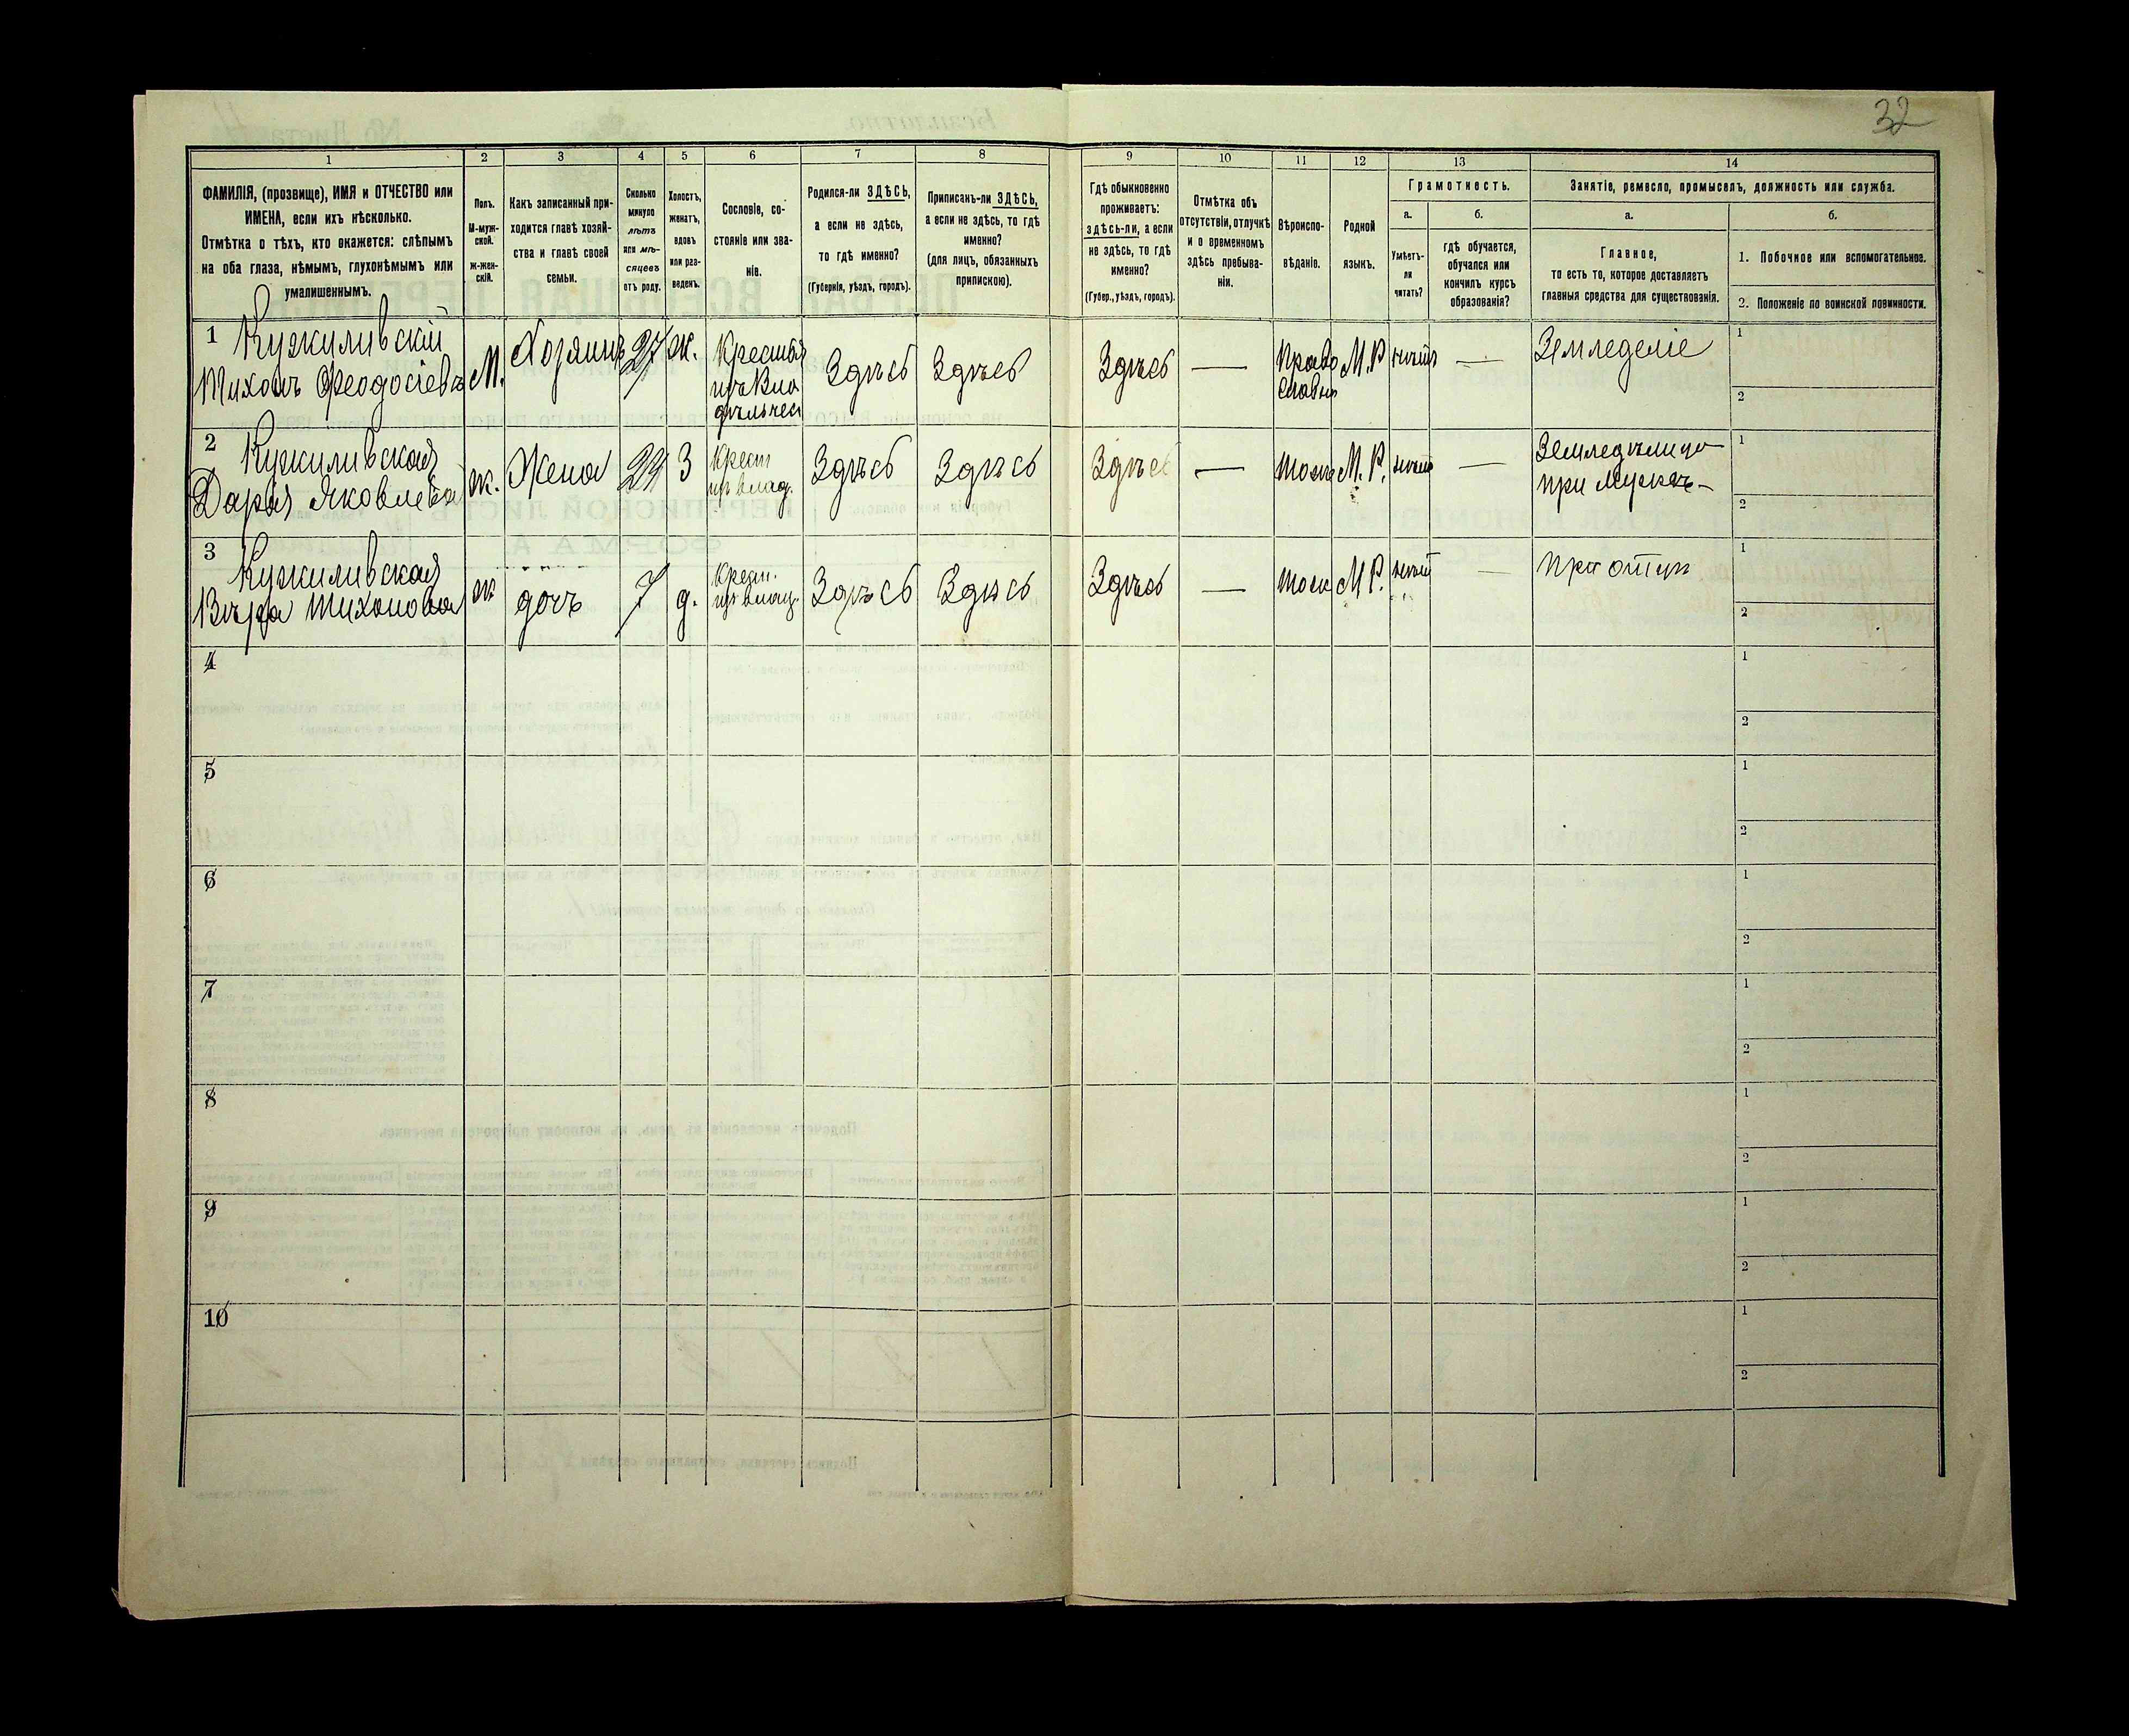 32
1 2 3 4 5 6 7 8 9 10 11 12 13 14
ФАМИЛІЯ, (прозвище), ИМЯ и ОТЧЕСТВО или
ИМЕНА, если ихъ нѣсколько.
Отмѣтка о тѣхъ, кто окажется: слѣпымъ
на оба глаза, нѣмымъ, глухонѣмымъ или
умалишеннымъ.
Полъ.
М-муж-
ской.
ж-жен-
скій.
Какъ записанный при-
ходится главѣ хозяй-
ства и главѣ своей
семьи.
Сколько
минуло
лѣтъ
или мѣ-
сяцевъ
отъ роду.
Холостъ,
женатъ,
вдовъ
или раз-
веденъ.
Сословіе, со-
стояніе или зва-
ніе.
Родился-ли ЗДѢСЬ,
а если не здѣсь,
то гдѣ именно?
(Губернія, уѣздъ, городъ).
Приписанъ-ли ЗДѢСЬ,
а если не здѣсь, то гдѣ
именно?
(для лицъ, обязанныхъ
припискою).
Гдѣ обыкновенно
проживаетъ:
здѣсь-ли, а если
не здѣсь, то гдѣ
именно?
(Губер., уѣздъ, городъ).
Отмѣтка объ
отсутствіи, отлучкѣ
и о временномъ
здѣсь пребыва-
ніи.
Вѣроиспо-
вѣданіе.
Родной
языкъ.
Грамотность.
а.
Умѣетъ-
ли
читать?
б.
гдѣ обучается,
обучался или
кончилъ курсъ
образованія?
Занятіе, ремесло, промыселъ, должность или служба.
а.
Главное,
то есть то, которое доставляетъ
главныя средства для существованія.
б.
1. Побочное или вспомогательное.
2. Положеніе по воинской повинности.
1 Кужиливскій
Тихонъ Феодосіевъ
М.
Хозяинъ
27
ж.
Крестья
изъ Вла
дѣльчес
Здѣсь
Здѣсь
Здѣсь
—
Право
славн
М.Р
—
Земледеліе
1
2
2 Кужиливская
Дарья Яковлева
ж.
Жена
24
З
Крест
изъ влад.
Здѣсь
Здѣсь
Здѣсь
—
тоже
М.Р.
—
при мужѣ
1
2
3 Кужиливская
Вѣра Тихонова
ж
дочь
7
д.
Крест.
изъ влад.
Здѣсь
Здѣсь
Здѣсь
—
тоже
М.Р.
—
При отцѣ
1
2
4
1
2
5
1
2
6
1
2
7
1
2
8
1
2
9
1
2
10
1
2